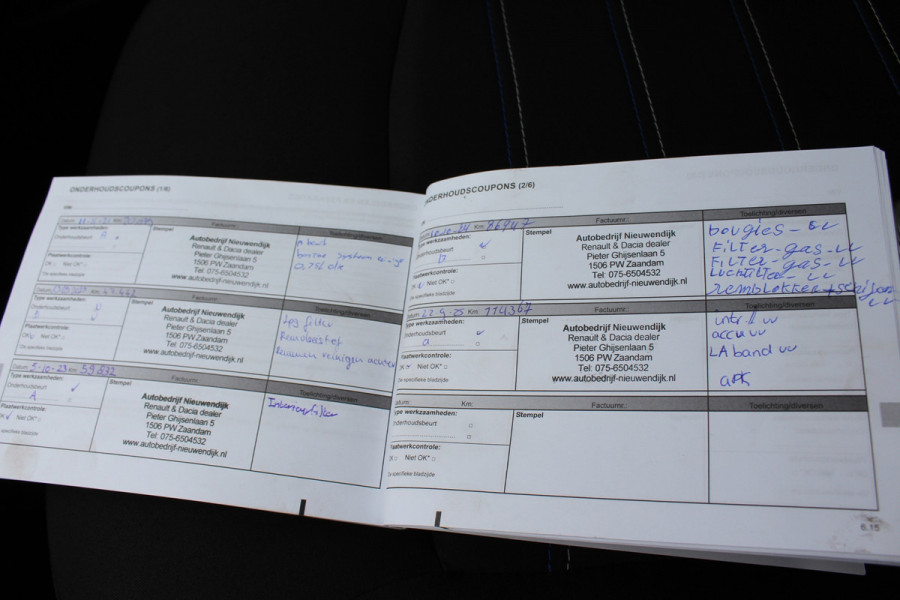 ONDERHOUDSCOUPONS (1/6)
VIN:
Datum: Km: Factuurnr.:
Type werkzaamheden:
Onderhoudsbeurt A
Plaatwerkcontrole:
OK Niet OK*
*Zie specifieke bladzijde
Stempel
Autobedrijf Nieuwendijk
Renault & Dacia dealer
Pieter Ghijsenlaan 5
1506 PW Zaandam
Tel: 075-6504532
www.autobedrijf-nieuwendijk.nl
Toelichting/diversen
A beurt
Datum: Km: Factuurnr.:
Type werkzaamheden:
Onderhoudsbeurt
B
Plaatwerkcontrole:
OK Niet OK*
*Zie specifieke bladzijde
Stempel
Autobedrijf Nieuwendijk
Renault & Dacia dealer
Pieter Ghijsenlaan 5
1506 PW Zaandam
Tel: 075-6504532
www.autobedrijf-nieuwendijk.nl
Toelichting/diversen
Lpg filter
Remvloeistof
Remmen reinigen
Datum: 5-10-23 Km: 59.872 Factuurnr.:
Type werkzaamheden:
Onderhoudsbeurt
A
Plaatwerkcontrole:
OK Niet OK*
*Zie specifieke bladzijde
Stempel
Autobedrijf Nieuwendijk
Renault & Dacia dealer
Pieter Ghijsenlaan 5
1506 PW Zaandam
Tel: 075-6504532
www.autobedrijf-nieuwendijk.nl
Toelichting/diversen
Interieurfilter
ONDERHOUDSCOUPONS (2/6)
Datum: Km: 96947 Factuurnr.:
Type werkzaamheden:
Onderhoudsbeurt
B
Plaatwerkcontrole:
OK Niet OK*
*Zie specifieke bladzijde
Stempel
Autobedrijf Nieuwendijk
Renault & Dacia dealer
Pieter Ghijsenlaan 5
1506 PW Zaandam
Tel: 075-6504532
www.autobedrijf-nieuwendijk.nl
Toelichting/diversen
bougies - vv
Filter-gas-vv
Filter-gas-vv
Luchtfilter - vv
remblokken+schijven
vv
Datum: 22-9-25 Km: 114367 Factuurnr.:
Type werkzaamheden:
Onderhoudsbeurt
a
Plaatwerkcontrole:
OK Niet OK*
*Zie specifieke bladzijde
Stempel
Autobedrijf Nieuwendijk
Renault & Dacia dealer
Pieter Ghijsenlaan 5
1506 PW Zaandam
Tel: 075-6504532
www.autobedrijf-nieuwendijk.nl
Toelichting/diversen
intr.fl vv
accu vv
LA band vv
apk
Datum: Km: Factuurnr.:
Type werkzaamheden:
Onderhoudsbeurt
Plaatwerkcontrole:
OK Niet OK*
*Zie specifieke bladzijde
Stempel
Toelichting/diversen
6.15